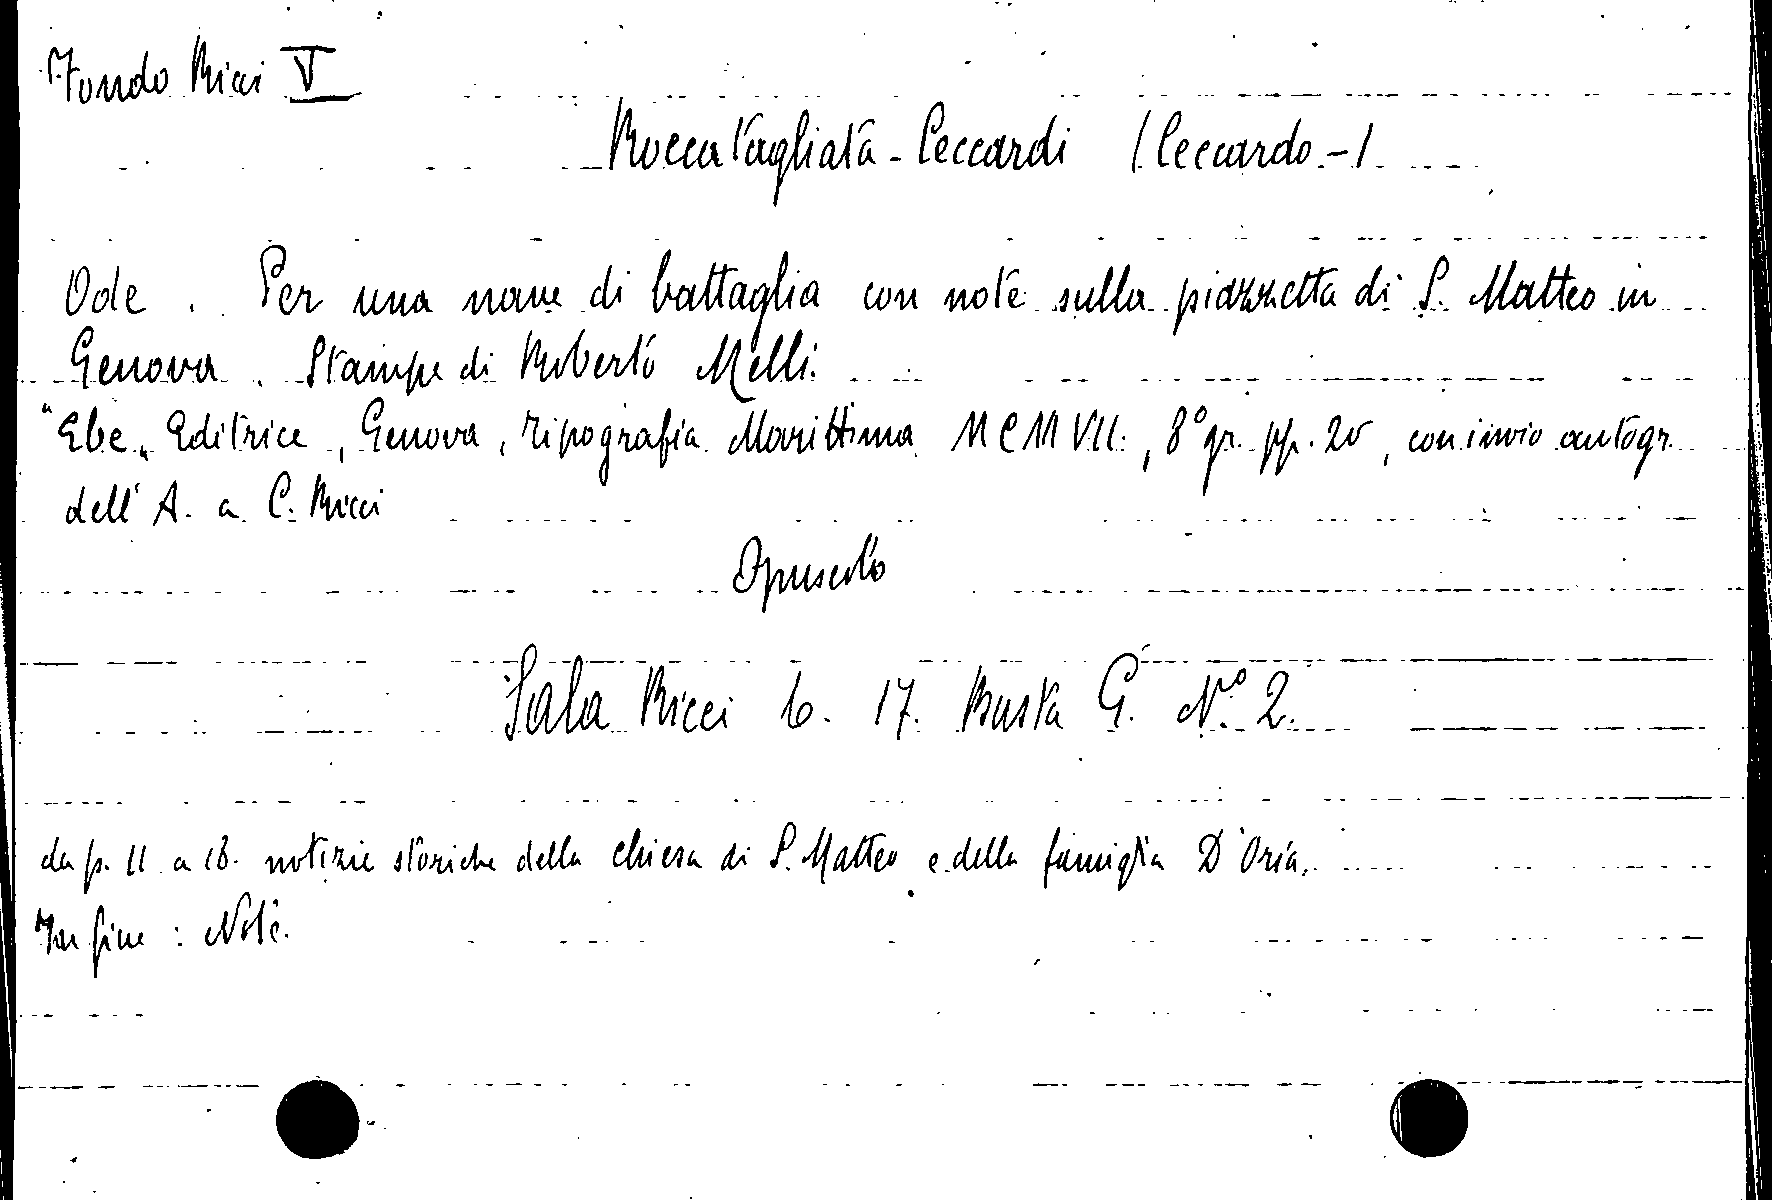 Fondo Ricci V
Roccatagliata-Ceccardi (Ceccardo-)
Ode. Per una nave di battaglia con note sulla piazzetta di S. Matteo in
Genova. Stampe di Roberto Melli.
"Ebe" Editrice, Genova, Tipografia Marittima MCMVII., 8° gr. pp. 20, con invio autogr.
dell'A. a C. Ricci
Opuscolo
Sala Ricci 6. 17. Busta G. N.° 2.
da p. 11 a 18. notizie storiche della chiesa di S. Matteo e della famiglia D'Oria.
In fine: Note.